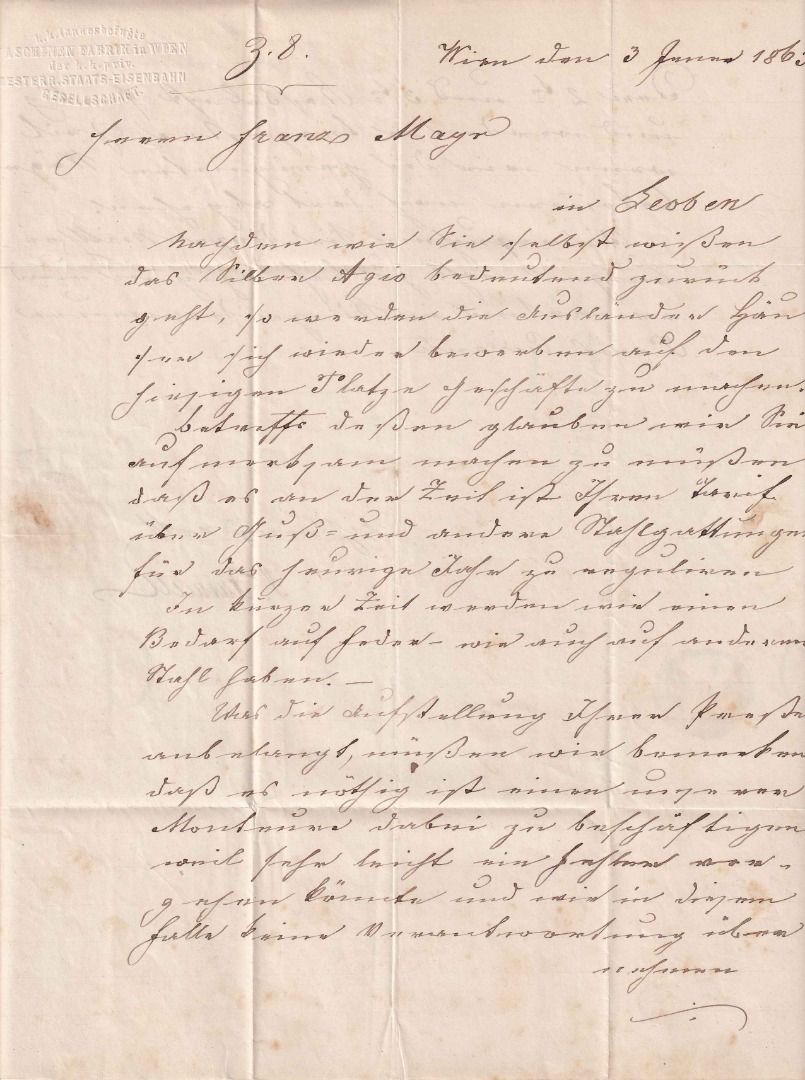 k. k. landesbefugte
MASCHINEN FABRIK in WIEN
der k. k. priv.
OESTERR. STAATS-EISENBAHN
GESELLSCHAFT.
Z. 8.
Wien den 3 Jener 1863
Herrn Franz Mayr
in Leoben
Nachdem wie Sie selbst wißen
das Silber Agio bedeutend zurück
geht, so werden die Ausländer Häu
ser sich wieder bewerben auf den
hiesigen Platze Geschäfte zu machen.
Betreffs deßen glauben wir Sie
aufmerksam machen zu müßen
daß es an der Zeit ist Ihren Tarif
über Guß= und andere Stahlgattungen
für das heurige Jahr zu reguliren
In kurzer Zeit werden wir einen
Bedarf auf Feder- wie auch auf anderen
Stahl haben. —
Was die Aufstellung Ihrer Preße
anbelangt, müßen wir bemerken
daß es nöthig ist einen unserer
Monteure dabei zu beschäftigen
weil sehr leicht ein Fehler vor-
gehen könnte und wir in diesem
Falle keine Verantwortung über
nehmen